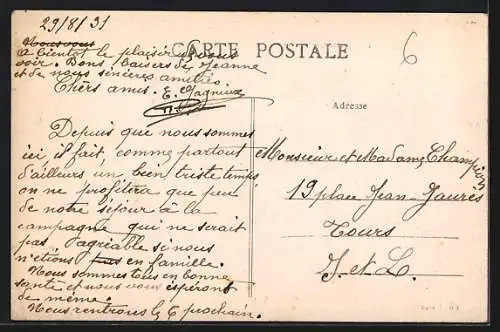 29/8/31
CARTE POSTALE
6
Adresse
Depuis que nous sommes
ici, il fait, comme partout
d'ailleurs un bien triste temps,
on ne profitera que peu
de notre séjour à la
campagne qui ne serait
pas agriable si nous
n'etions pas en famille.
Nous sommes tous en bonne
santé et nous vous espérons
de même.
Nous rentrons le 6 prochain.
A bientôt le plaisir de vous
voir. Bons baisers de Jeanne
et de nous sincères amitiés
Chers amis. E.
Monsieur et Madame Champion
19 place Jean-Jaurès
Tours
I. et L.